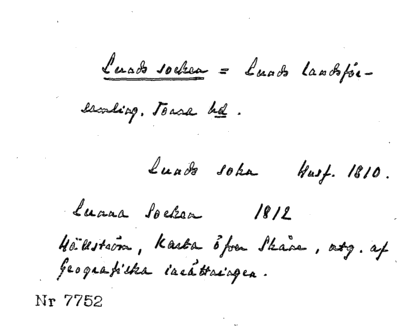 Lunds socken = Lunds landsför-
samling. Torna hd.
Lunds sokn Husf. 1810.
Lunna Socken 1812
Hällström, Karta öfver Skåne, utg. af
Geografiska inrättningen.
Nr 7752